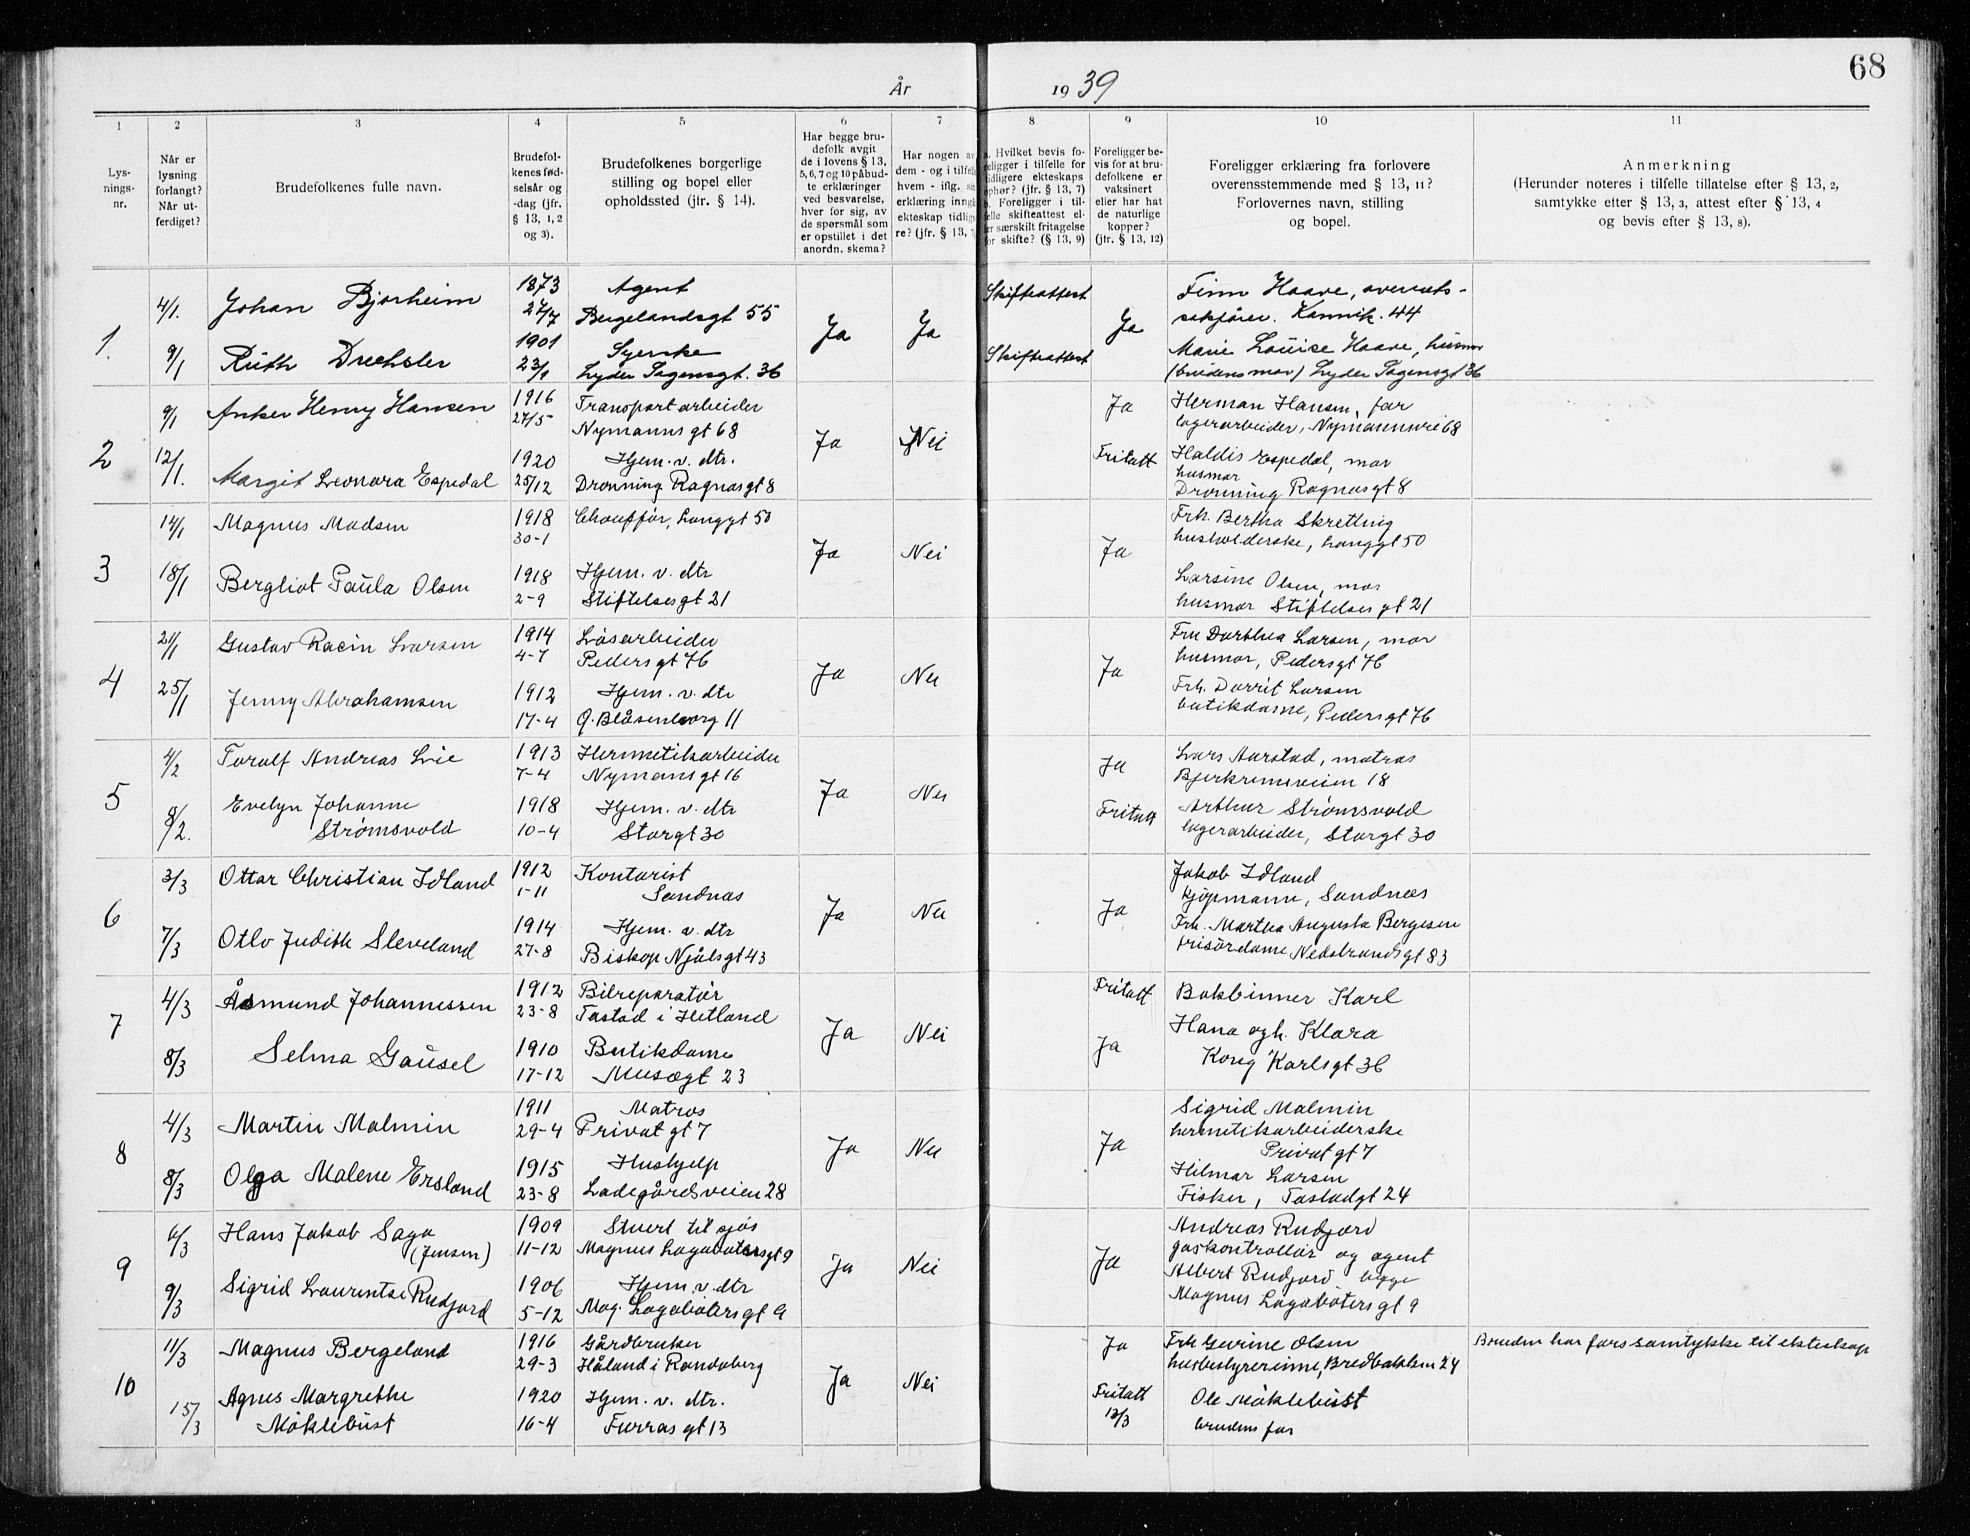 68
År 1939
1 2 3 4 5 6 7 8 9 10 11
Lysningsnr.
Når er lysning forlangt? Når utferdiget?
Brudefolkenes fulle navn.
Brudefolkenes fødselsår og -dag (jfr. § 13, 1, 2 og 3).
Brudefolkenes borgerlige stilling og bopel eller opholdssted (jfr. § 14).
Har begge brudefolk avgit de i lovens § 13, 5, 6, 7 og 10 påbudte erklæringer ved besvarelse, hver for sig, av de spørsmål som er opstillet i det anordn. skema?
Har nogen av dem - og i tilfelle hvem - iflg. erklæring inngått ekteskap tidligere? (jfr. § 13,
a. Hvilket bevis foreligger i tilfelle for tidligere ekteskaps ophør? (jfr. § 13, 7) b. Foreligger i tilfelle skifteattest eller særskilt fritagelse for skifte? (§ 13, 9)
Foreligger bevis for at brudefolkene er vaksinert eller har hat de naturlige kopper? (jfr. § 13, 12)
Foreligger erklæring fra forlovere overensstemmende med § 13, 11? Forlovernes navn, stilling og bopel.
Anmerkning (Herunder noteres i tilfelle tillatelse efter § 13, 2, samtykke efter § 13, 3, attest efter § 13, 4 og bevis efter § 13, 8).
1.
4/1. Johan Bjorheim 1873 27/7 Agent Bergelandsgt 55
Ja Ja
Skifteattest
Ja
Finn Haave, overretssakfører. Kannik. 44
9/1 Ruth Drechsler 1901 23/1 Syerske Lyder Sagensgt. 36
Skifteattest
Marie Louise Haave, husmor (brudens mor) Lyder Sagensgt 36
2
9/1 Anker Henry Hansen 1916 27/5 Transportarbeider Nymannsgt 68
Ja Nei
Ja
Herman Hansen, far lagerarbeider, Nymannsvei 68
12/1. Margit Leonora Espedal 1920 25/12 Hjem. v. dtr. Dronning Ragnasgt 8
Fritatt
Haldis Espedal, mor husmor Dronning Ragnasgt 8
3
14/1 Magnus Madsen 1918 30-1 Chauffør, Langgt 50
Ja Nei
Ja
Frk. Bertha Skretting husholderske, Langgt 50
18/1 Bergliot Paula Olsen 1918 2-9 Hjem. v. dtr Stiftelsesgt 21
Larsine Olsen, mor husmor Stiftelsesgt 21
4
21/1 Gustav Racin Larsen 1914 4-7 Løsarbeider Pedersgt 76
Ja Nei
Ja
Fru Dorthea Larsen, mor husmor, Pedersgt 76
25/1 Jenny Abrahamsen 1912 17-4 Hjem. v. dtr Ø. Blåsenborg 11
Frk. Dorrit Larsen butikdame, Pedersgt 76
5
4/2 Torolf Andreas Lie 1913 7-4 Hermetikarbeider Nymansgt 16
Ja Nei
Ja
Lars Aarstad, matros Bjerkremsveien 18
8/2. Evelyn Johanne Strømsvold 1918 10-4 Hjem. v. dtr Storgt 30
Fritatt
Arthur Strømsvold lagerarbeider, Storgt 30
6
3/3 Ottar Christian Idland 1912 1-11 Kontorist Sandnæs
Ja Nei
Ja
Jakob Idland kjøpmann, Sandnes
7/3 Otlo Judith Sleveland 1914 27-8 Hjem. v. dtr Biskop Njålsgt 43
Frk. Martha Augusta Bergesen frisørdame Nedstrandsgt 83
7
4/3 Åsmund Johannessen 1912 23-8 Bilreparatør Tastad i Hetland
Ja Nei
Fritatt
Bokbinner Karl
8/3 Selma Gausel 1910 17-12 Butikdame Musegt 23
Ja
Hana ogh. Klara Kong Karlsgt 36
8
4/3 Martin Malmin 1911 29-4 Matros Privatgt 7
Ja Nei
Ja
Sigrid Malmin hermetikarbeiderske Privatgt 7
8/3 Olga Malene Ersland 1915 23-8 Hushjelp Ladegårdsveien 28
Hilmar Larsen Fisker, Tastadgt 24
9
6/3 Hans Jakob Saga (Jensen) 1909 11-12 Stuert til sjøs Magnus Lagabøtersgt 9
Ja Nei
Ja
Andreas Rudjord gaskontrollør og agent
9/3 Sigrid Laurentse Rudjord 1906 5-12 Hjem. v. dtr Mag. Lagabøtersgt 9
Albert Rudjord begge Magnus Lagabøtersgt 9
10
11/3 Magnus Bergeland 1916 29-3 Gårdbruker Håland i Randaberg
Ja Nei
Ja
Frk Gurine Olsen husbestyrerinne, Bredbakken 24
Bruden har fars samtykke til ekteskap
15/3 Agnes Margrethe Møklebust 1920 16-4 Hjem. v. dtr. Furrasgt 13
Fritatt 13/3
Ole Møklebust brudens far